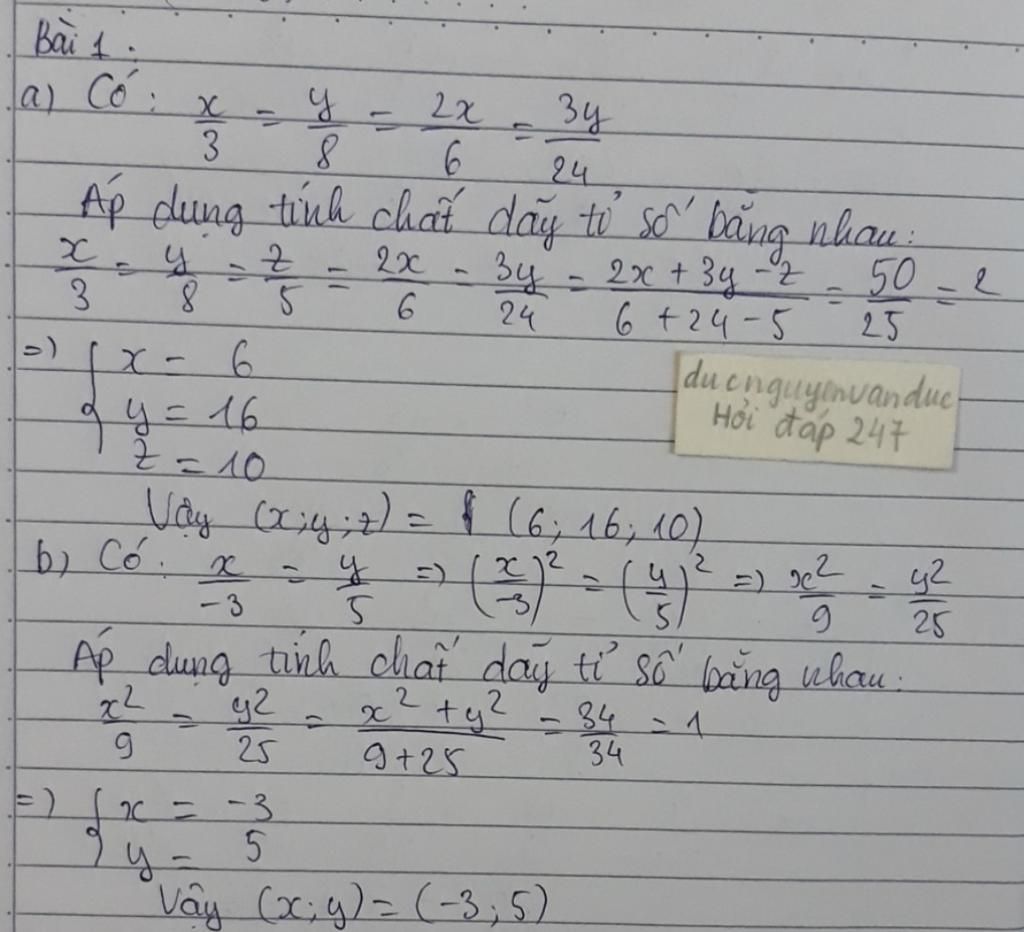 Bài 1:
a) Có: x/3 = y/8 = 2x/6 = 3y/24
Áp dụng tính chất dãy tỉ số bằng nhau:
x/3 = y/8 = z/5 = 2x/6 = 3y/24 = (2x + 3y - z)/(6 + 24 - 5) = 50/25 = 2
=> { x = 6
y = 16
z = 10
ducnguyenvanduc
Hỏi đáp 247
Vậy (x; y; z) = (6; 16; 10)
b) Có: x/-3 = y/5 => (x/-3)² = (y/5)² => x²/9 = y²/25
Áp dụng tính chất dãy tỉ số bằng nhau:
x²/9 = y²/25 = (x² + y²)/(9+25) = 34/34 = 1
=> { x = -3
y = 5
Vậy (x; y) = (-3; 5)